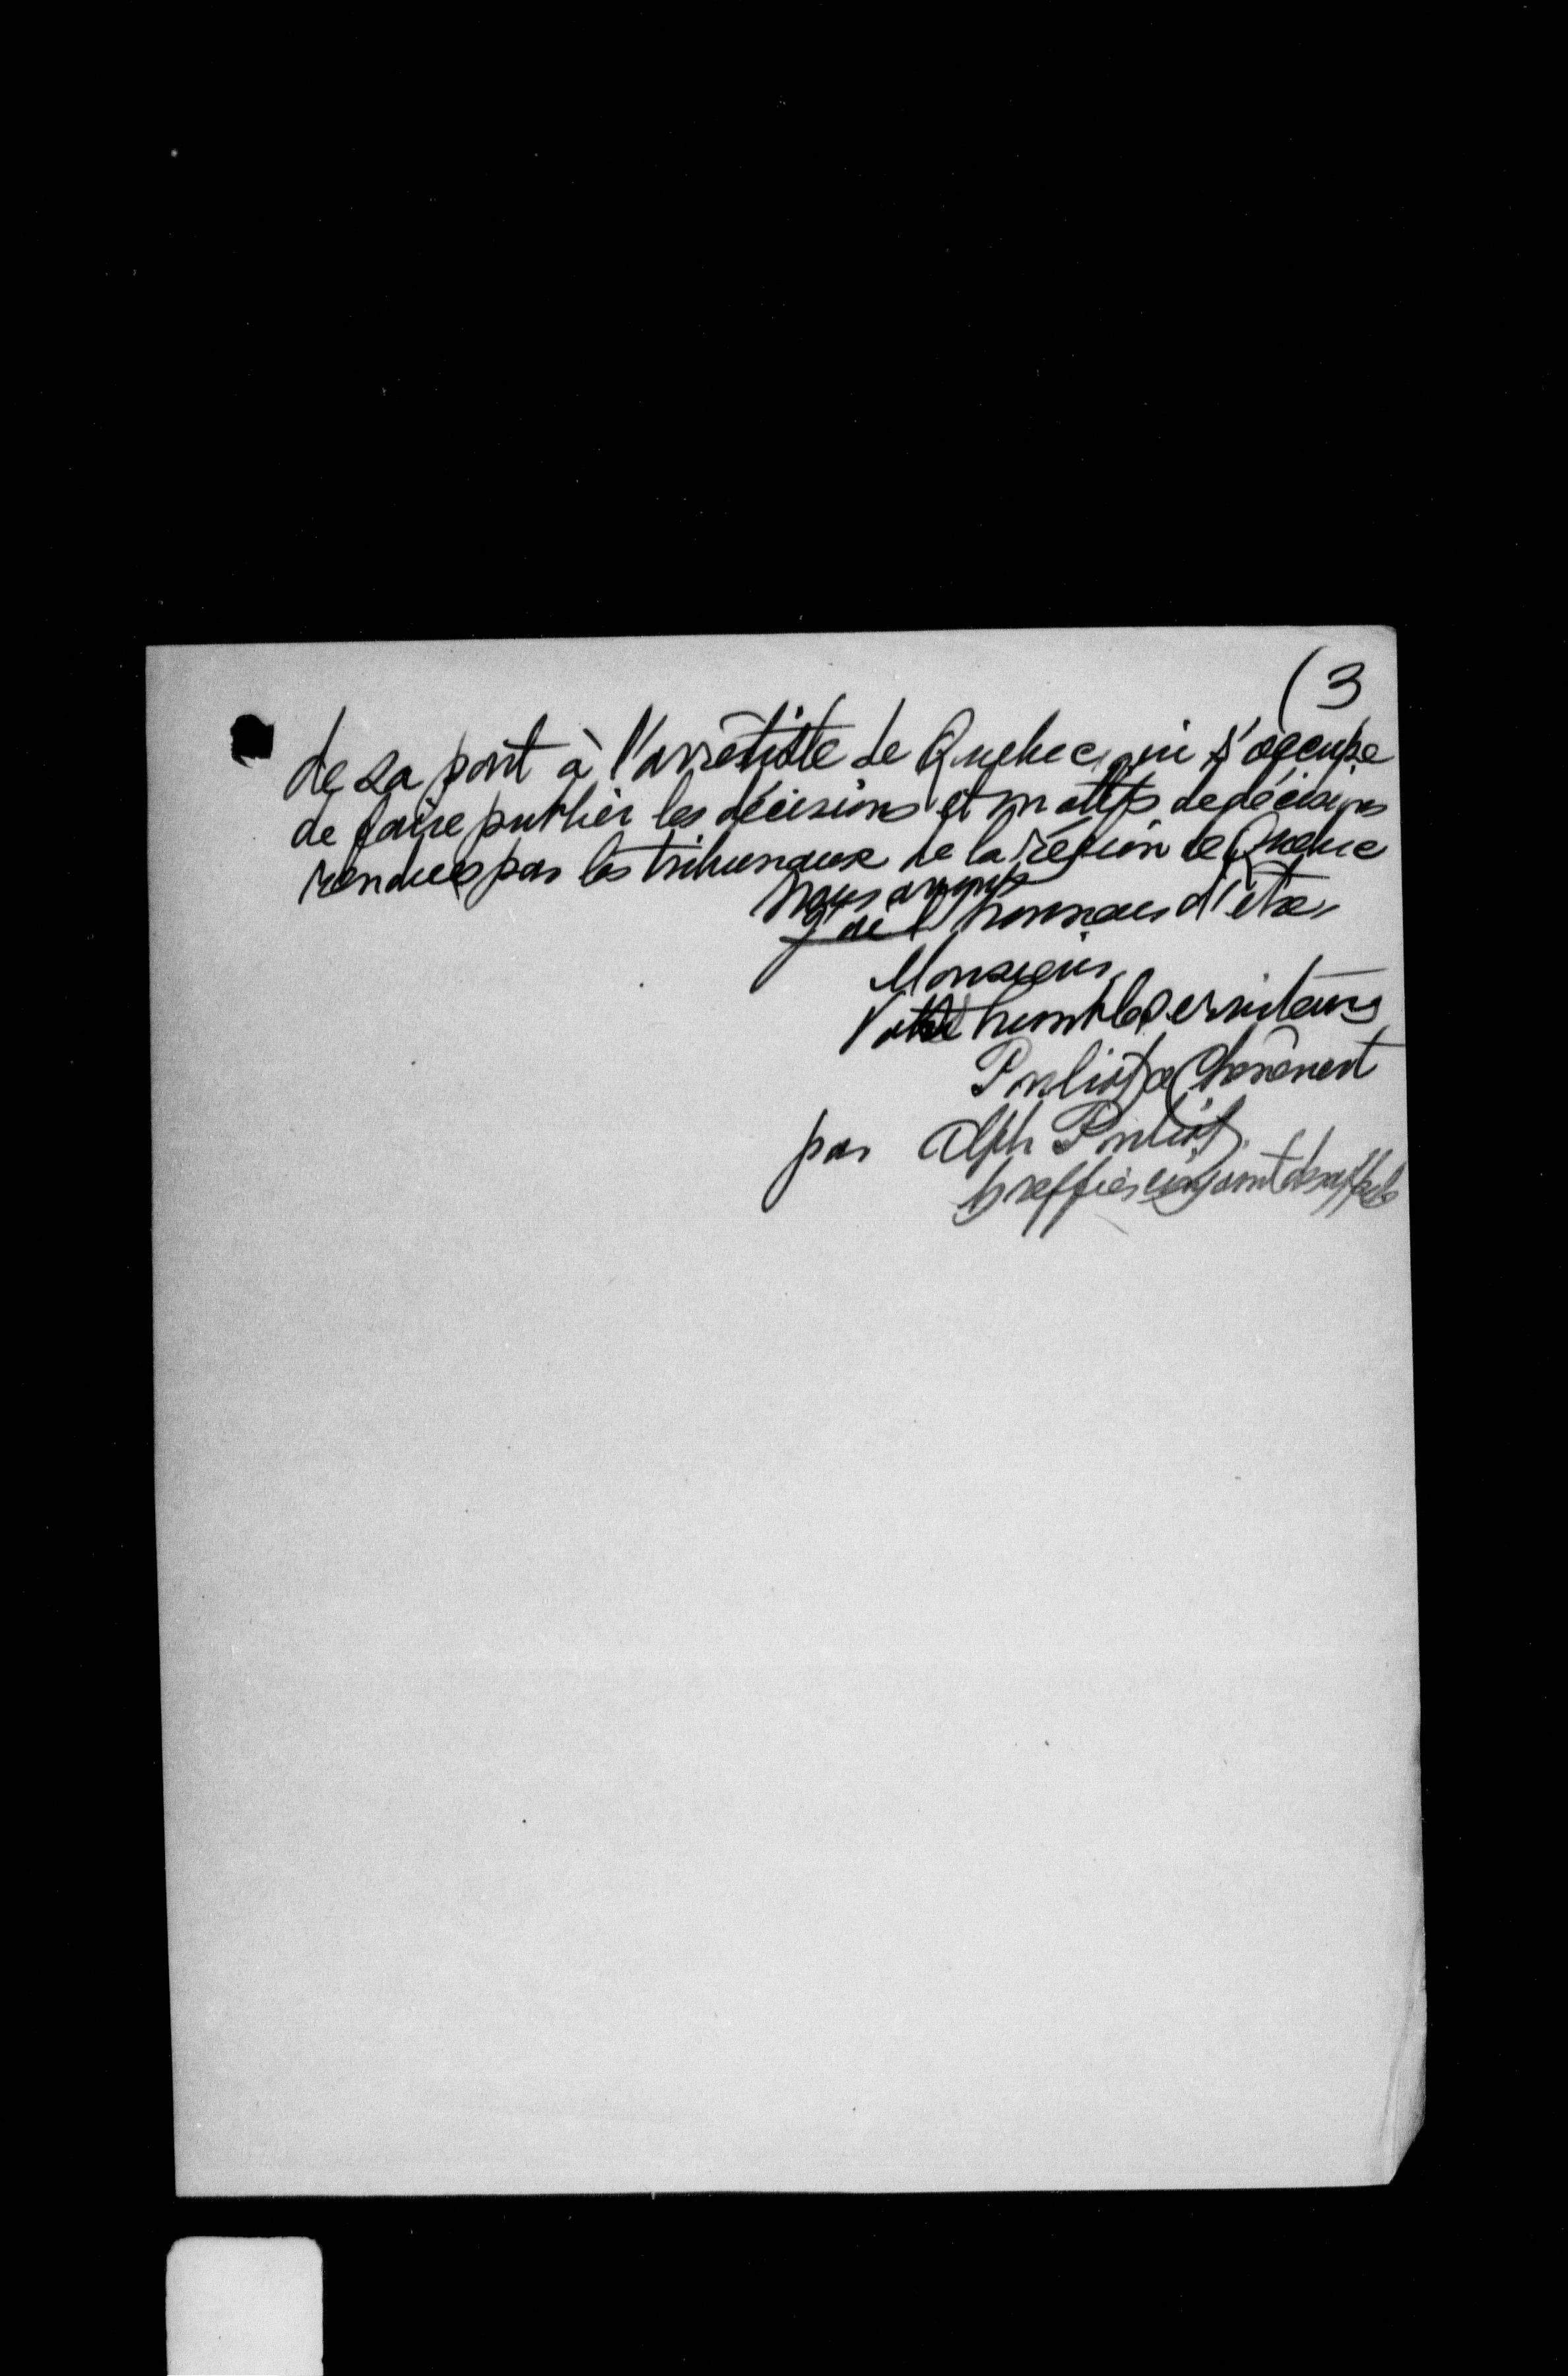 (3
de sa part à l'arrêtiste de Quebec qui s'occupe
de faire publier les décisions et motifs de décisions
rendues par les tribunaux de la région de Quebec
Nous avons
J'ai l'honneur d'être,
Monsieur,
Votre humbles serviteurs
Pouliot &
par Alph Pouliot
Greffier conjoint des appels